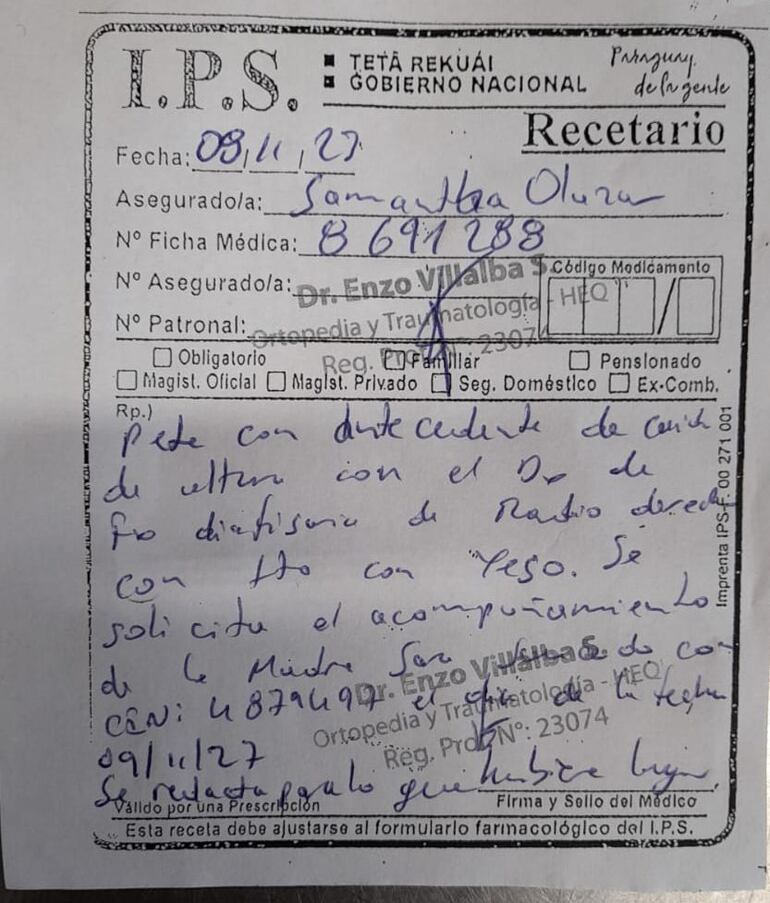 I.P.S.
TETÃ REKUÁI
GOBIERNO NACIONAL
Paraguay
de la gente
Recetario
Fecha: 09/11/27
Asegurado/a: Samantha
Nº Ficha Médica: 8691288
Nº Asegurado/a:
Dr. Enzo Villalba S.
Código Medicamento
Nº Patronal:
Ortopedia y Traumatología - HEQ
Reg. Prof. Nº: 23074
Obligatorio Familiar Pensionado
Magist. Oficial Magist. Privado Seg. Doméstico Ex-Comb.
Rp.)
Pcte con antecedente de
de altura con el Dx de
Fx diafisaria de Radio derecho
con tto con Yeso. Se
solicita el acompañamiento
de la Madre Sara con
CIN: 4879497 el día de la fecha
09/11/27
Se redacta para lo que hubiere lugar.
Dr. Enzo Villalba S.
Ortopedia y Traumatología - HEQ
Reg. Prof. Nº: 23074
Válido por una Prescripción
Firma y Sello del Médico
Esta receta debe ajustarse al formulario farmacológico del I.P.S.
Imprenta IPS-F. 00 271 001